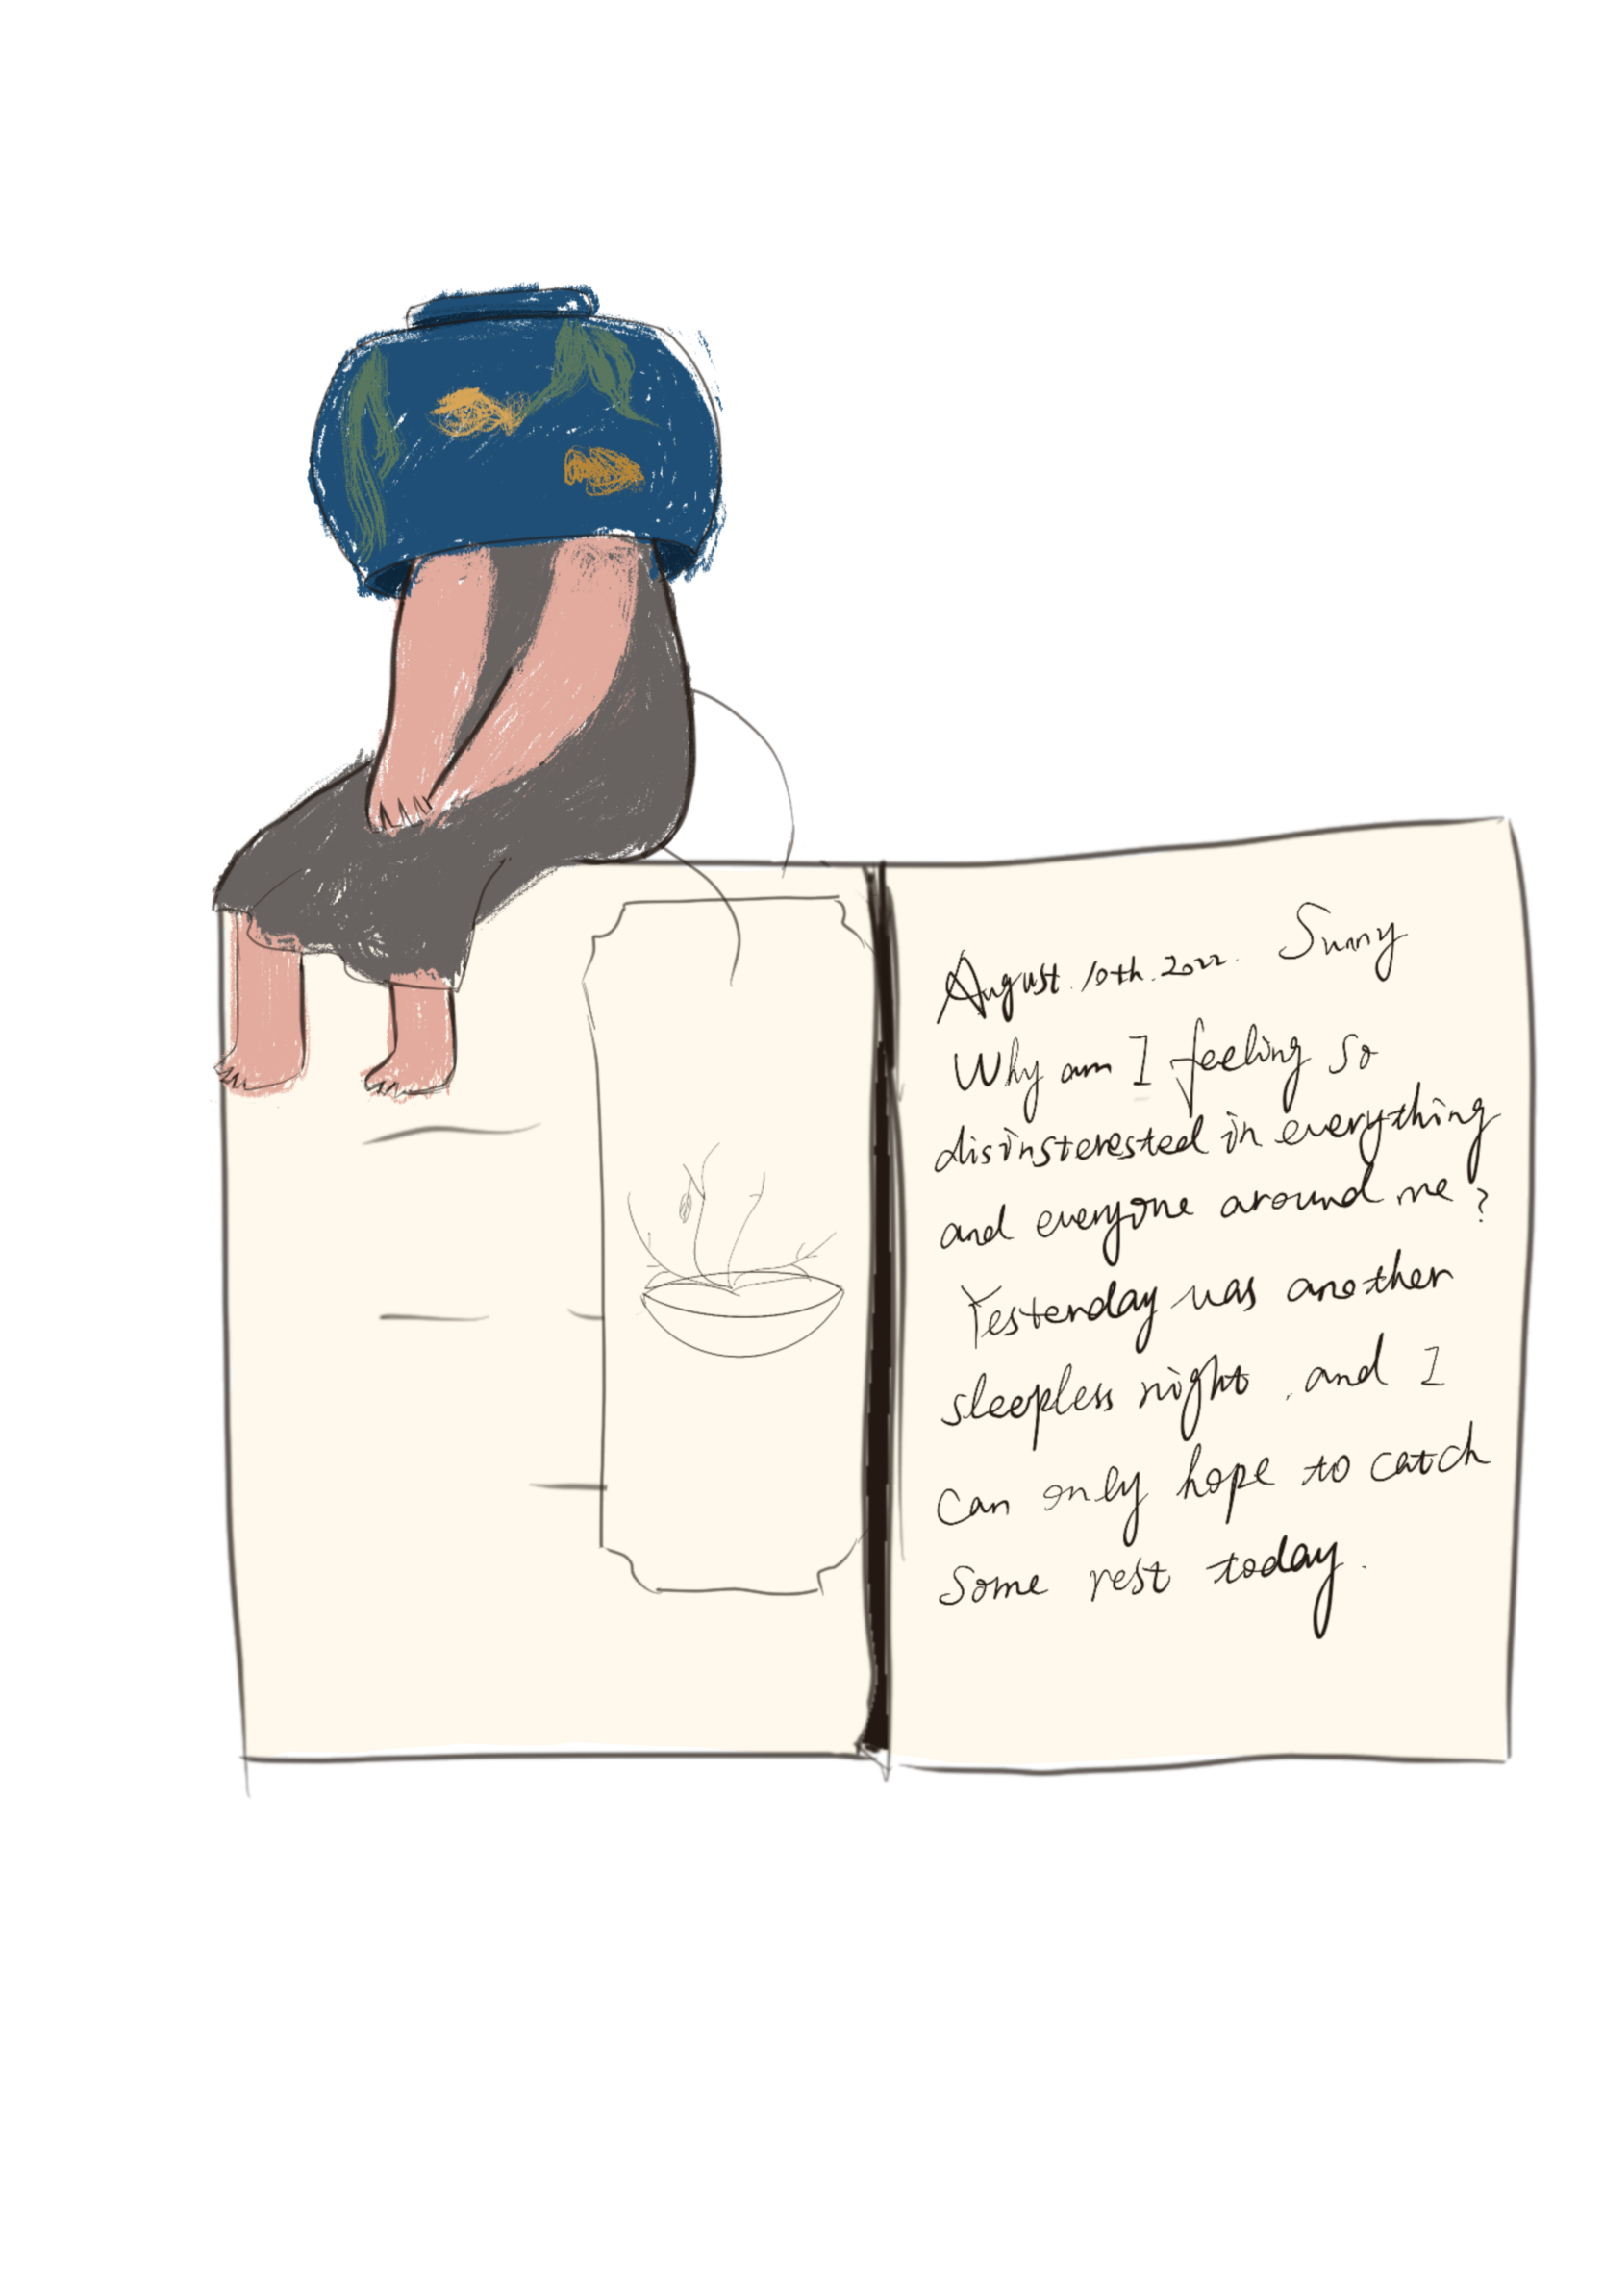 August. 10th. 2022. Sunny
Why am I feeling so
disinsterested in everything
and everyone around me?
Yesterday was another
sleepless night, and I
can only hope to catch
some rest today.